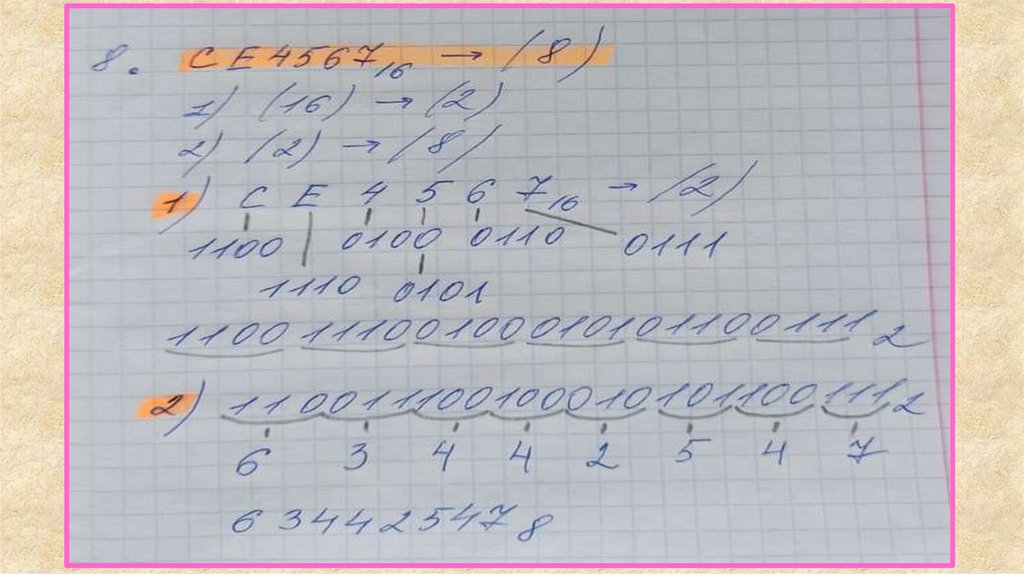 8. CE4567₁₆ → (8)
1) (16) → (2)
2) (2) → (8)
1) C E 4 5 6 7₁₆ → (2)
1100 0100 0110 0111
1110 0101
1100 1110 0100 0101 0110 0111₂
2) 110 011 100 100 010 101 100 111₂
6 3 4 4 2 5 4 7
63442547₈